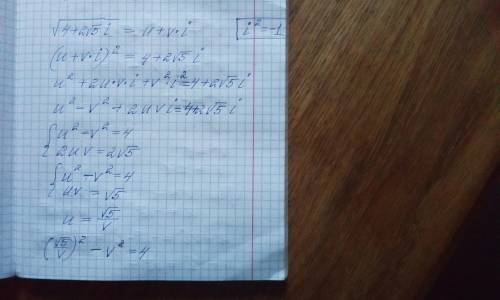 √(4+2√5 i) = u+v·i [i²=-1
(u+v·i)² = 4+2√5 i
u²+2u·v·i+v²i²=4+2√5 i
u²-v²+2uvi=4+2√5 i
{u²-v²=4
2uv=2√5
{u²-v²=4
uv=√5
u = √5/v
(√5/v)² - v² = 4